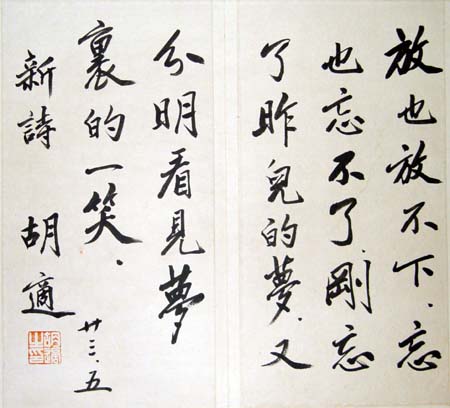 放也放不下、忘
也忘不了、剛忘
了昨兒的夢、又
分明看見夢
裏的一笑、
新詩 胡適
廿三、五
胡適之印